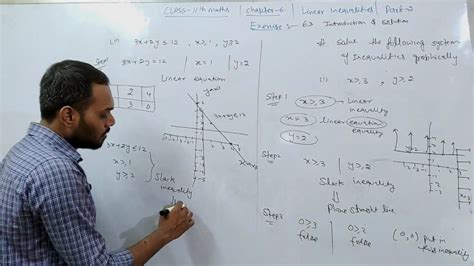 CLASS-11th maths | chapter-6 | Linear Inequalities | Part-2
Exercise:- 6.3 Introduction & Solution
(ii) 3x+2y≤12, x≥1, y≥2
3x+2y=12 | x=1 | y=2
2 4
3 0
Linear equation
y axis
3x+2y≤12
3x+2y≤12
x≥1
y≥2
Slack inequality
# Solve the following system of Inequalities graphically
(i) x≥3, y≥2
Step:1
x≥3 → Linear inequality
x=3 → Linear equation
y=2
Step:2
x≥3 | y≥2
Slack inequality
Plane straight line
Step:3
0≥3 | 0≥2
false | false
(0,0) put in